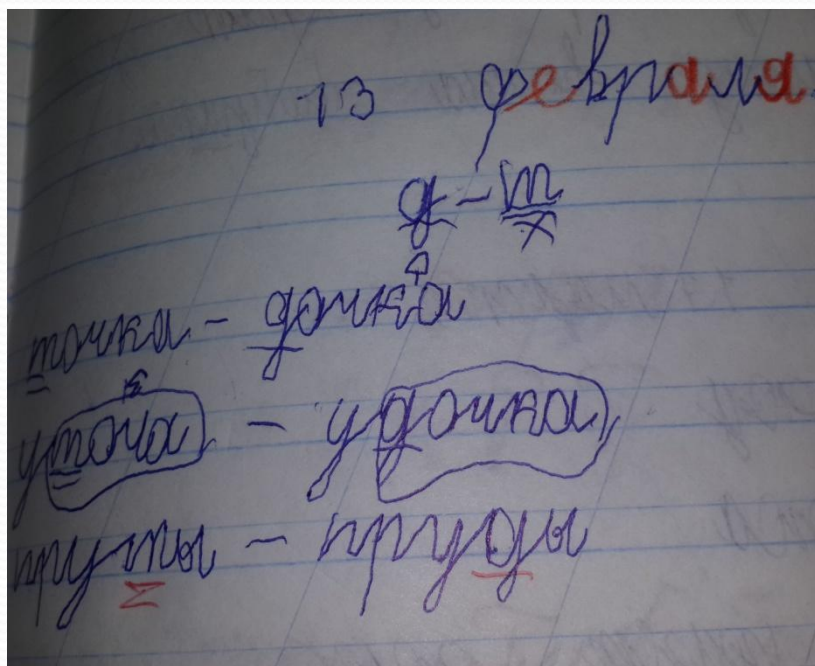 13 февраля
д - т
точка - дочка
уточка - удочка
пруты - пруды